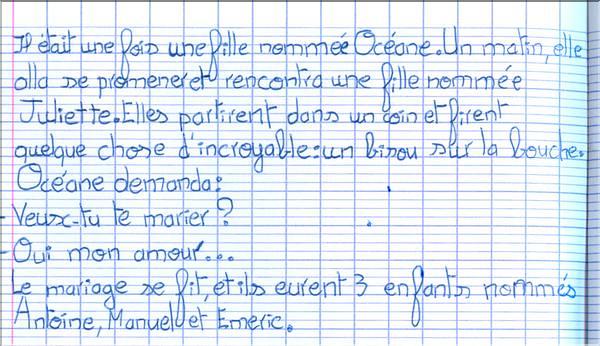 Il était une fois une fille nommée Océane. Un matin, elle
alla se promener et rencontra une fille nommée
Juliette. Elles partirent dans un coin et firent
quelque chose d'incroyable : un bisou sur la bouche.
Océane demanda :
- Veux-tu te marier ?
- Oui mon amour...
Le mariage se fit, et ils eurent 3 enfants nommés
Antoine, Manuel et Emeric.